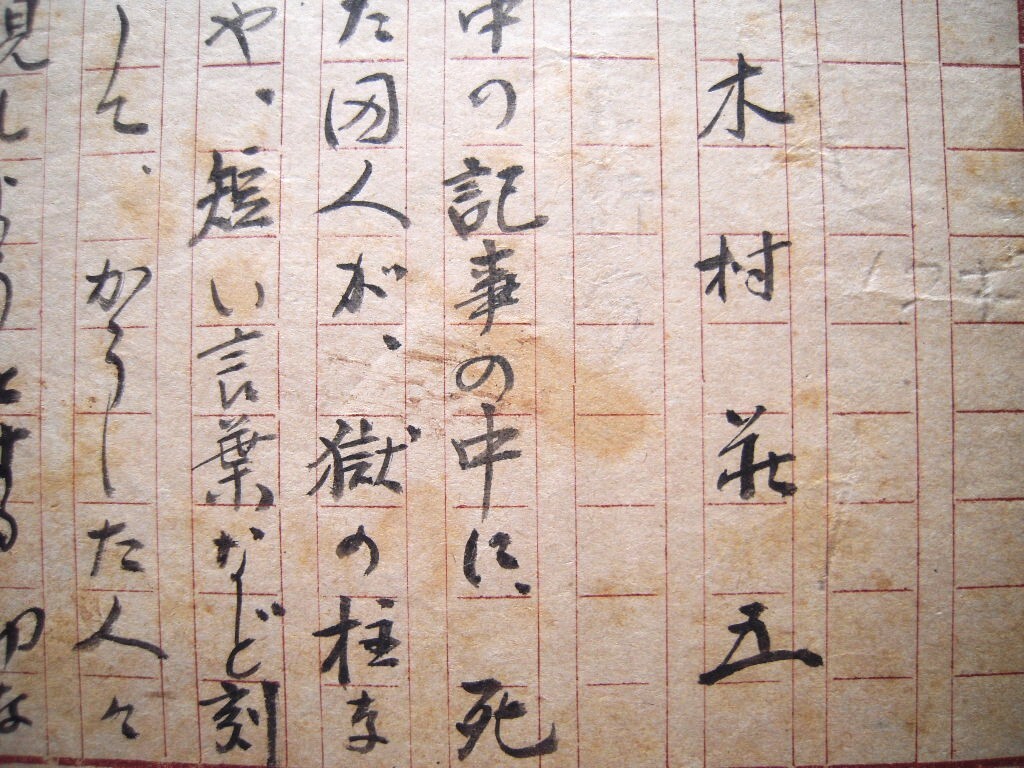 木村荘五
中の記事の中に、死
た囚人が、獄の柱な
や、短い言葉など刻
して、かうした人々